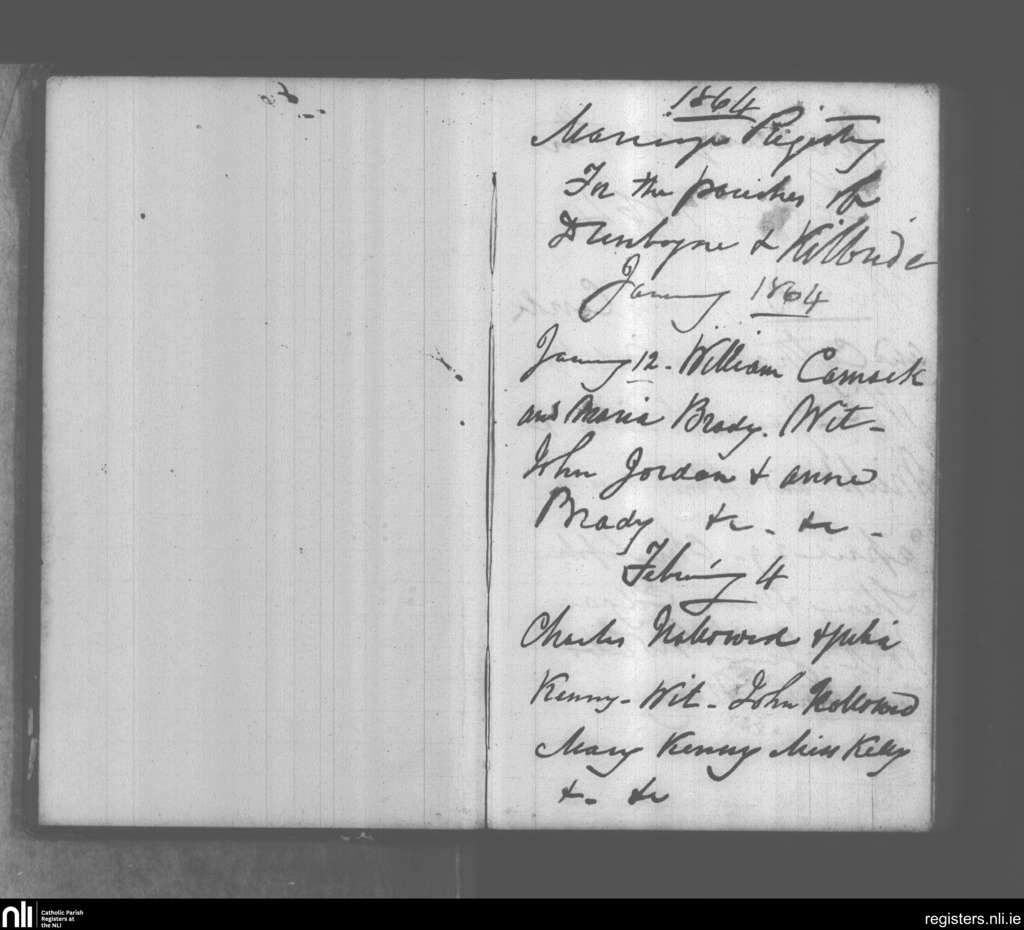 1864
Marriage Registry
For the parishes of
Dunboyne & Kilbride
January 1864
January 12. William Comack
and Maria Brady. Wit-
John Jordan & anne
Brady &c - &c -
February 4
Charles & Julia
Kenny - Wit - John
Mary Kenny Miss Kelly
&- &c
nli
Catholic Parish
Registers at
the NLI
registers.nli.ie